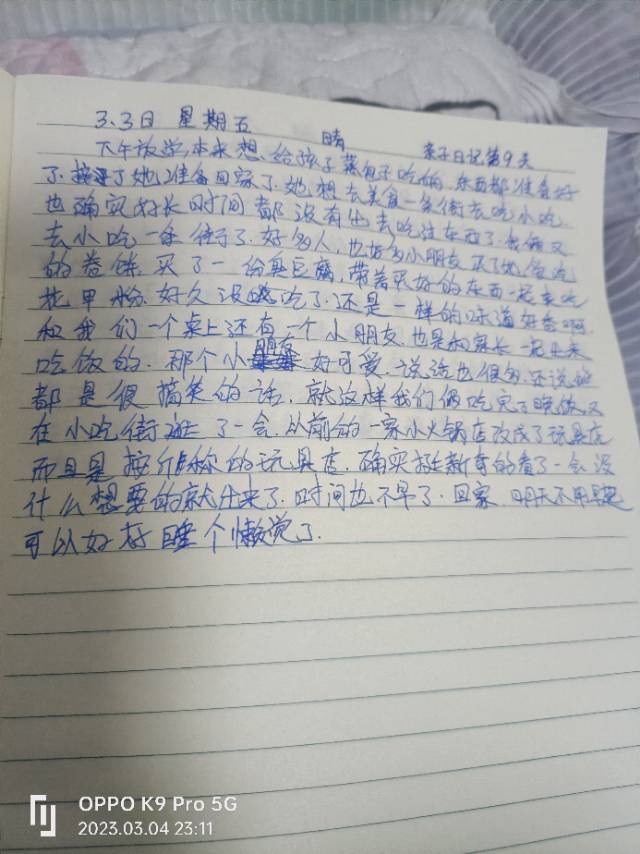 3.3日 星期五 晴 亲子日记第9天
下午放学,本来想给孩子蒸包子吃的,东西都准备好
了.接了她准备回家了.她想去美食一条街去吃小吃.
也确实好长时间都没有出去吃过东西了.我俩又
去小吃一条街了.好多人,也好多小朋友.买了她
的卷饼.买了一份臭豆腐,带着买好的东西一起去吃
花甲粉.好久没吃了.还是一样的味道好香啊.
和我们一个桌上还有一个小朋友.也是和家长一起出来
吃饭的.那个小朋友好可爱.说话也很多.还说
都是很搞笑的话.就这样我们俩吃完了晚饭又
在小吃街逛了一会.从前的一家小火锅店改成了玩具店
而且是按斤称的玩具店.确实挺新奇的看了一会没
什么想要的就出来了.时间也不早了.回家.明天不用早起
可以好好睡个懒觉了.
OPPO K9 Pro 5G
2023.03.04 23:11